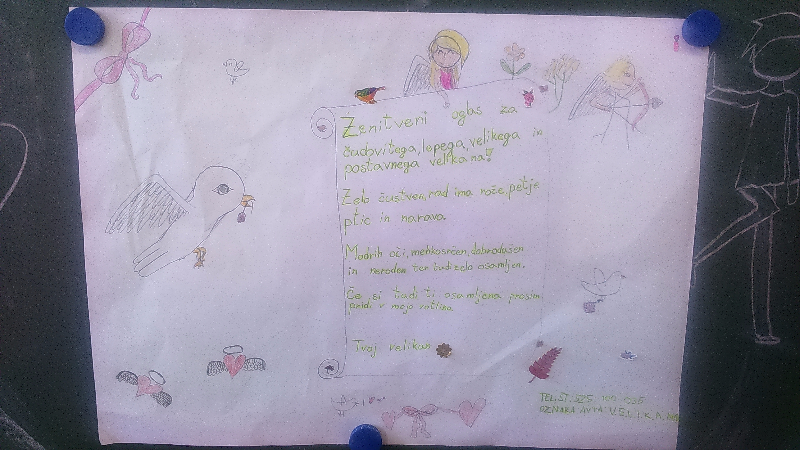 Ženitveni oglas za
čudovitega, lepega, velikega in
postavnega velikana!
Zelo čustven, rad ima rože, petje
ptic in naravo.
Modrih oči, mehkosrčen, dobrodušen
in neroden ter tudi zelo osamljen.
Če si tudi ti osamljena prosim
pridi v mojo votlino.
Tvoj velikan
TEL.ŠT.
ZNAMKA AVTA: VELIKAN